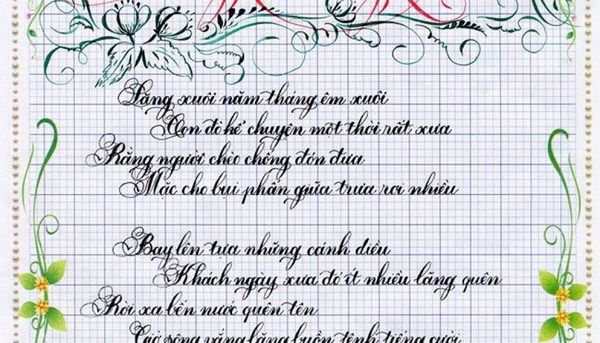 Lặng xuôi năm tháng êm xuôi
Con đò kể chuyện một thời rất xưa
Rằng người chèo chống đón đưa
Mặc cho bụi phấn giữa trưa rơi nhiều
Bay lên tựa những cánh diều
Khách ngày xưa đó ít nhiều lãng quên
Rời xa bến nước quên tên
Giờ sông vắng lặng buồn tênh tiếng cười